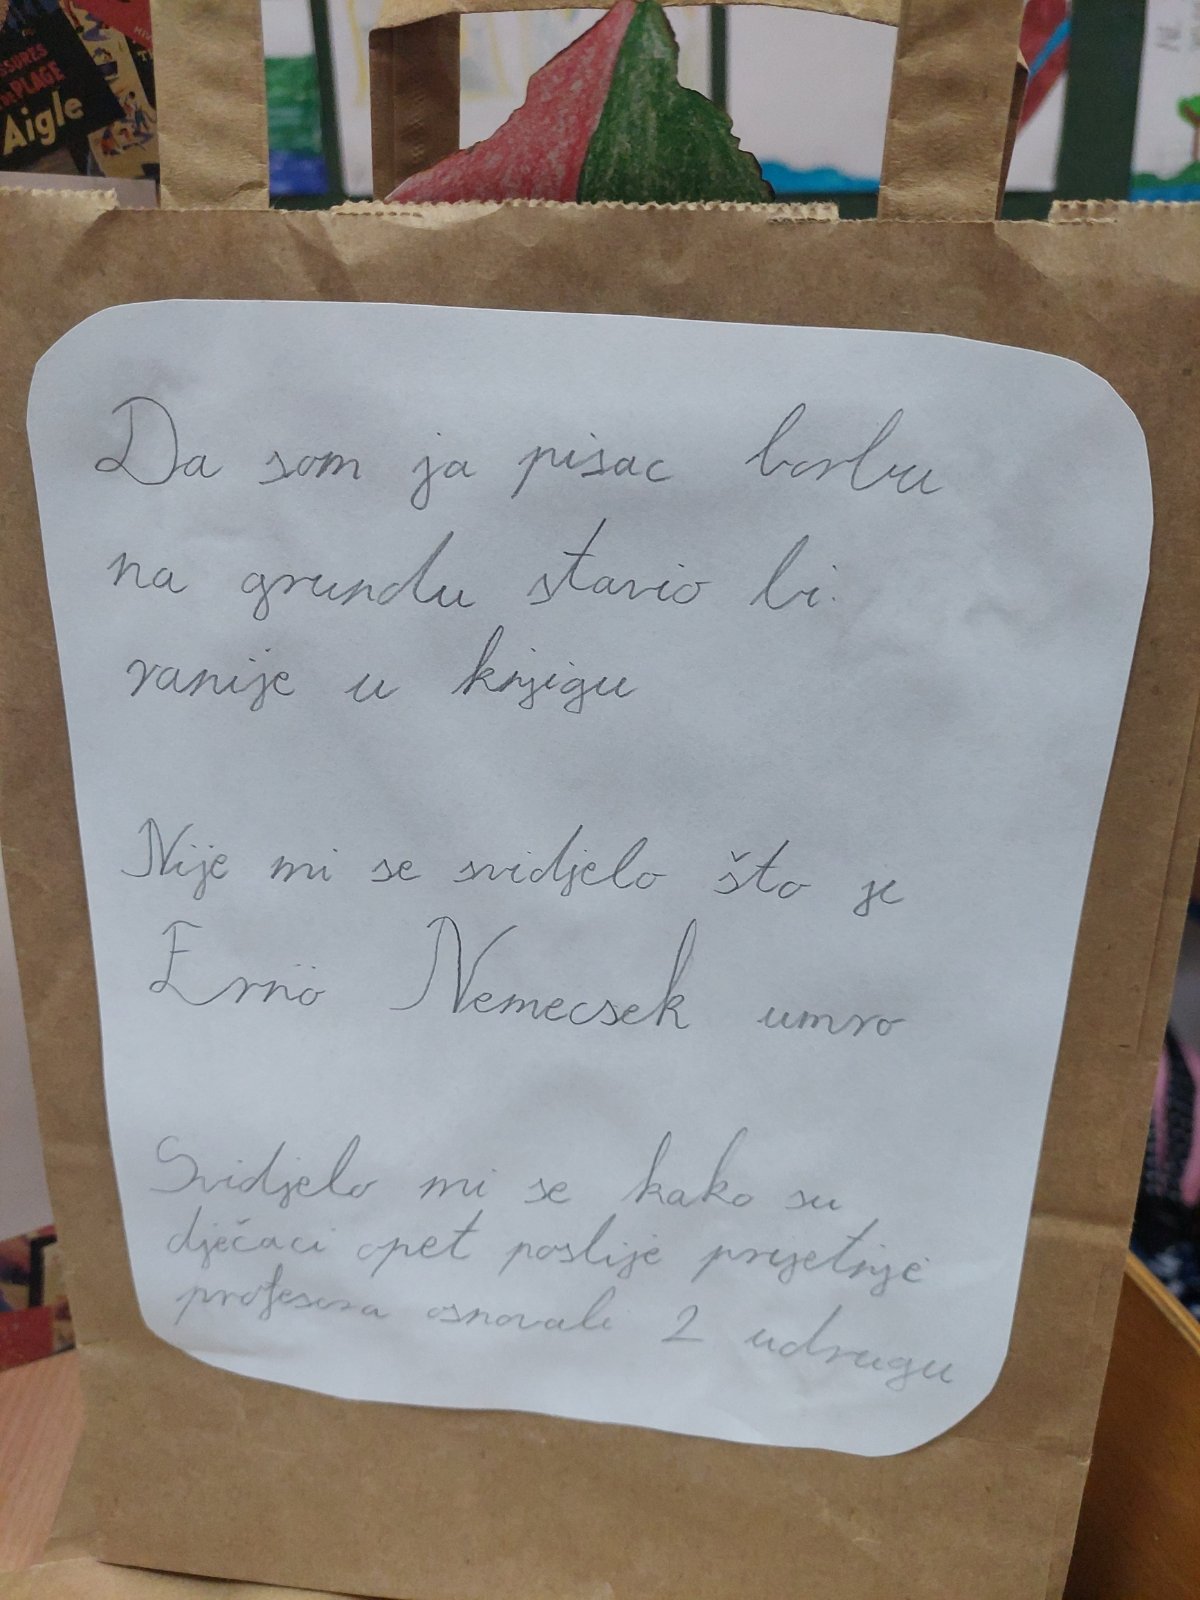 SSURES
DE PLAGE
Aigle
Da som ja pisac borbu
na grundu stavio bi.
ranije u knjigu
Nije mi se svidjelo što je
Ernö Nemecsek umro
Svidjelo mi se kako su
dječaci opet poslije prijetnje
profesora osnovali 2 udrugu